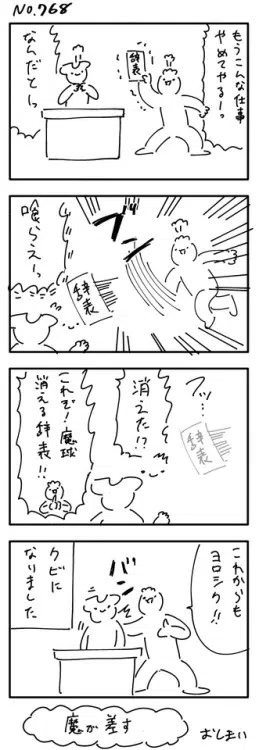 No.768
もうこんな仕事
やめてやるーっ
辞表
なんだとーっ
ブンッ
喰らえーっ
辞表
フッ…
辞表
消えた!?
これぞ!魔球
消える辞表!!
これからも
ヨロシク!!
バン
クビに
なりました
魔が差す
おしまい